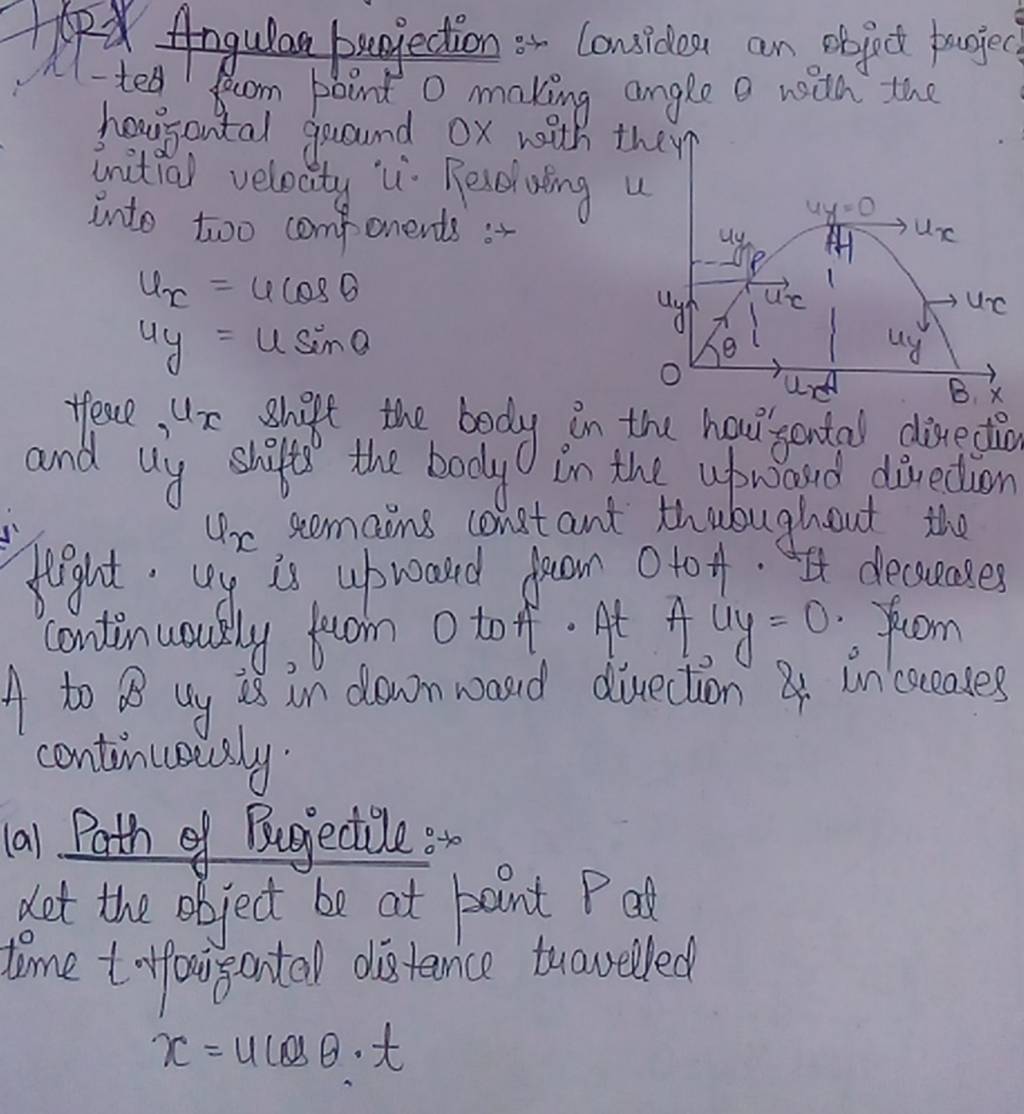 Angular projection :- Consider an object projec
-ted from point O making angle θ with the
horizontal ground OX with the
initial velocity 'u'. Resolving u
into two components :-
ux = u cos θ
uy = u sin θ
y
uy = 0
ux
H
uy
P
ux
uy
ux
uy
θ
O
ux
A
B
X
Here, ux shift the body in the horizontal direction
and uy shifts the body in the upward direction
ux remains constant throughout the
flight. uy is upward from O to A. It decreases
continuously from O to A. At A uy = 0. From
A to B uy is in downward direction & increases
continuously.
(a) Path of Projectile :-
Let the object be at point P at
time t. Horizontal distance travelled
x = u cos θ . t